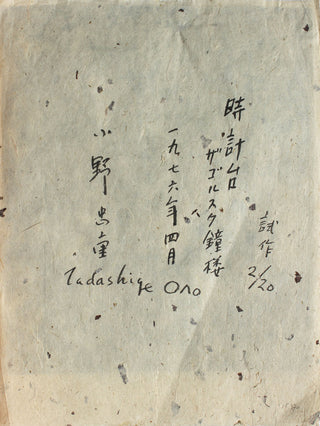 試作 2/20
時計台
ザゴルスク鐘楼
一九七六年四月
小野忠重
Tadashige Ono